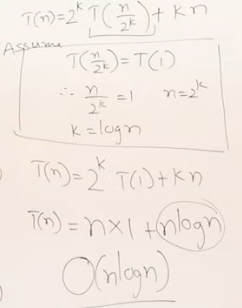 T(n)=2^k T(n/2^k) + kn
Assume
T(n/2^k) = T(1)
∴ n/2^k = 1 n=2^k
k = logn
T(n) = 2^k T(1) + kn
T(n) = n×1 + nlogn
O(nlogn)